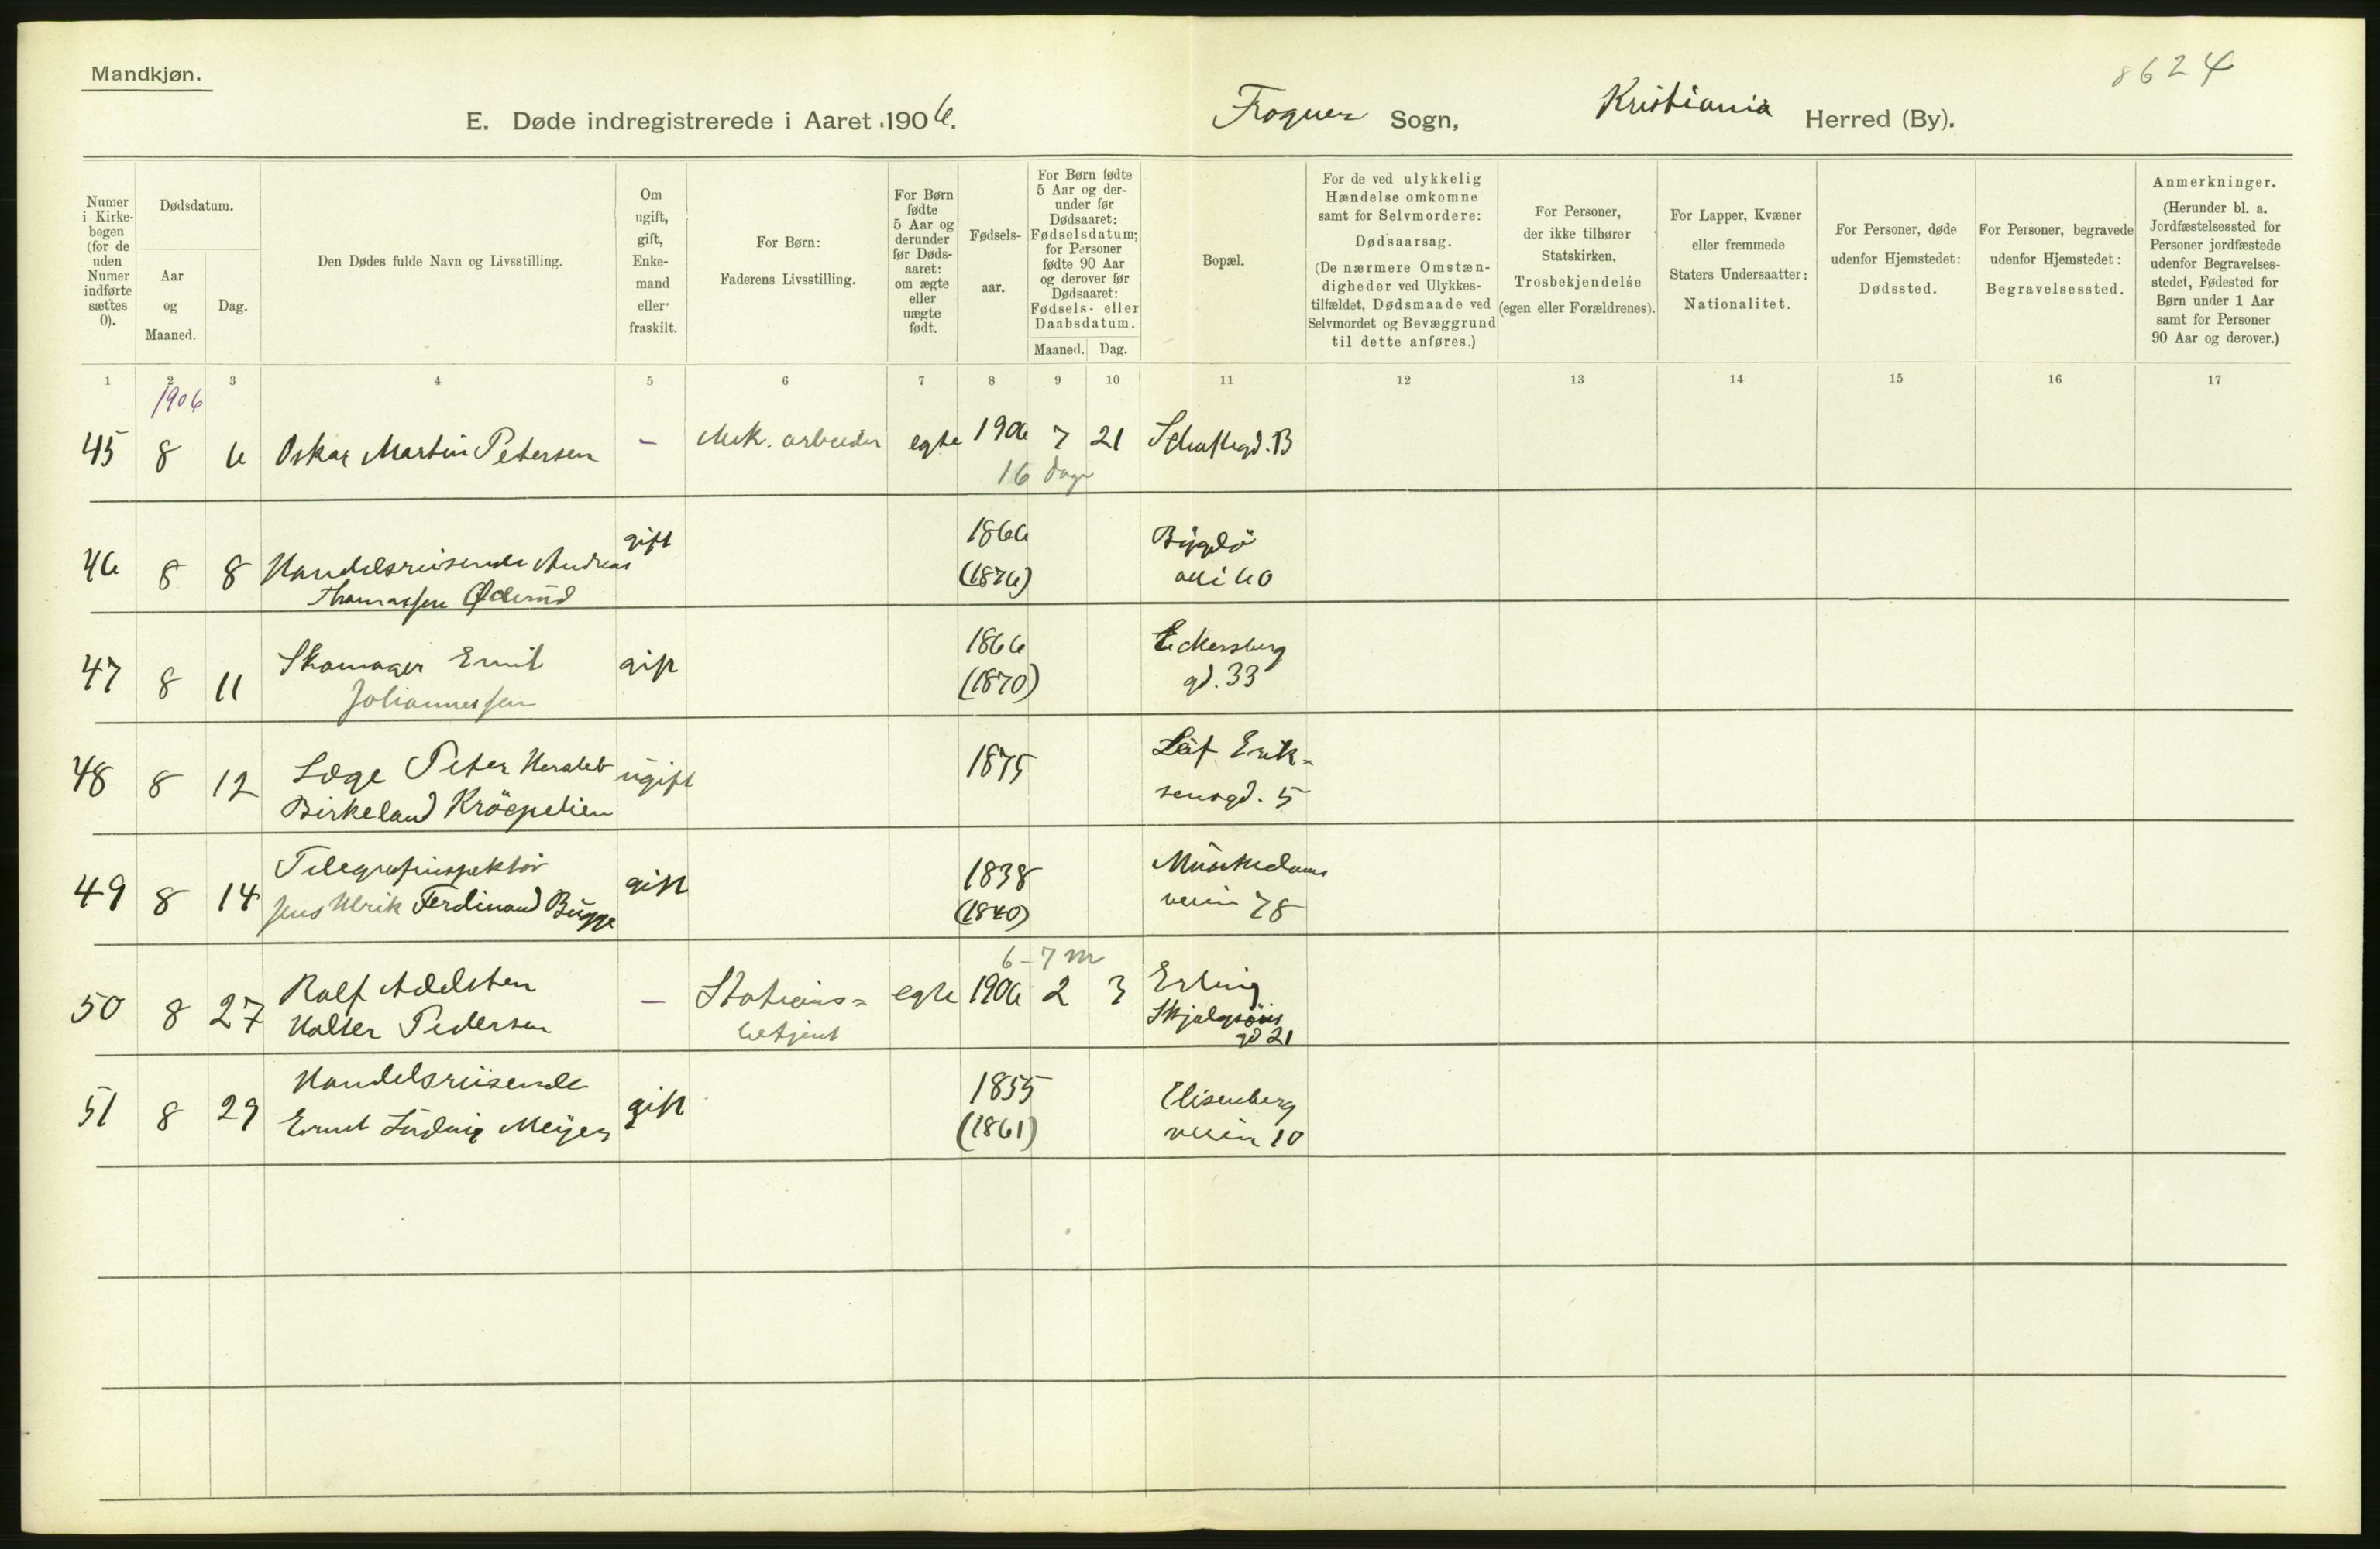 Mandkjøn.
8624
E. Døde indregistrerede i Aaret 1906. Frogner Sogn, Kristiania Herred (By).
Numer i Kirkebogen (for de uden Numer indførte sættes 0).
Dødsdatum.
Aar og Maaned.
Dag.
Den Dødes fulde Navn og Livsstilling.
Om ugift, gift, Enkemand eller fraskilt.
For Børn: Faderens Livsstilling.
For Børn fødte 5 Aar og derunder før Dødsaaret: om ægte eller uægte født.
Fødselsaar.
For Børn fødte 5 Aar og derunder før Dødsaaret: Fødselsdatum; for Personer fødte 90 Aar og derover før Dødsaaret: Fødsels- eller Daabsdatum.
Maaned. Dag.
Bopæl.
For de ved ulykkelig Hændelse omkomne samt for Selvmordere: Dødsaarsag. (De nærmere Omstændigheder ved Ulykkestilfældet, Dødsmaade ved Selvmordet og Bevæggrund til dette anføres.)
For Personer, der ikke tilhører Statskirken, Trosbekjendelse (egen eller Forældrenes).
For Lapper, Kvæner eller fremmede Staters Undersaatter: Nationalitet.
For Personer, døde udenfor Hjemstedet: Dødssted.
For Personer, begravede udenfor Hjemstedet: Begravelsessted.
Anmerkninger. (Herunder bl. a. Jordfæstelsessted for Personer jordfæstede udenfor Begravelsesstedet, Fødested for Børn under 1 Aar samt for Personer 90 Aar og derover.)
1 2 3 4 5 6 7 8 9 10 11 12 13 14 15 16 17
1906
45 8 6 Oskar Martin Petersen – Mek. arbeider egte 1906 7 21 B
16 dage
46 8 8 Handelsreisende Andreas gift 1866 Bygdö
Thomassen Öderud (1876) alle 60
47 8 11 Skomager Emil gift 1866 Eckersberg
Johannessen (1870) gd. 33
48 8 12 Læge Peter Hersleb ugift 1875 Leif Erik-
Birkeland Kröepelien sensgd. 5
49 8 14 Telegrafinspektör gift 1838 Munkedams
Jens Ulrik Ferdinand Bugge (1840) veien 78
6-7 m
50 8 27 Rolf Adelsten – Stations- egte 1906 2 3 Erling
Halter Pedersen betjent Skjalgsöns
gd 21
51 8 29 Handelsreisende gift 1855 Elisenberg
Ernst Ludvig Meyer (1861) veien 10